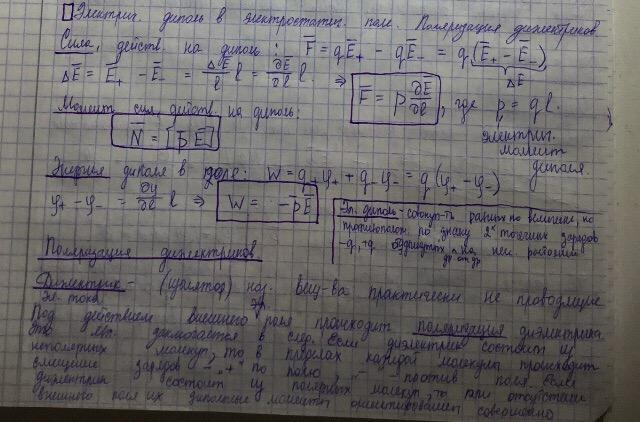 Электрич. диполь в электростатич. поле. Поляризация диэлектриков
Сила, действ. на диполь: F̅ = qE̅₊ − qE̅₋ = q(E̅₊ − E̅₋)
ΔE̅
ΔE̅ = E̅₊ − E̅₋ = ΔE̅/l l = ∂E̅/∂l l. ⇒ F̅ = p ∂E̅/∂l, где p = ql.
Момент сил, действ. на диполь:
электрич.
момент
диполя
N̅ = [p̅ E̅]
Энергия диполя в поле: W = q₊φ₊ + q₋φ₋ = q(φ₊ − φ₋)
φ₊ − φ₋ = ∂φ/∂l l ⇒ W = −p̅E̅
Эл. диполь - совокуп-ть равных по величине, но
противополож. по знаку 2ˣ точечных зарядов
-q, +q, сдвинутых на расстоянии
др от др
Поляризация диэлектриков
Диэлектрик - (изолятор) наз. вещ-ва практически не проводящие
эл. тока.
Под действием внешнего эл поля происходит поляризация диэлектрика
это явл. заключается в след. Если диэлектрик состоит из
неполярных молекул, то в пределах каждой молекулы происходит
смещение зарядов - „+" по полю, „-" - против поля. Если
диэлектрик состоит из полярных молекул, то при отсутствии
внешнего поля их дипольные моменты ориентированы совершенно